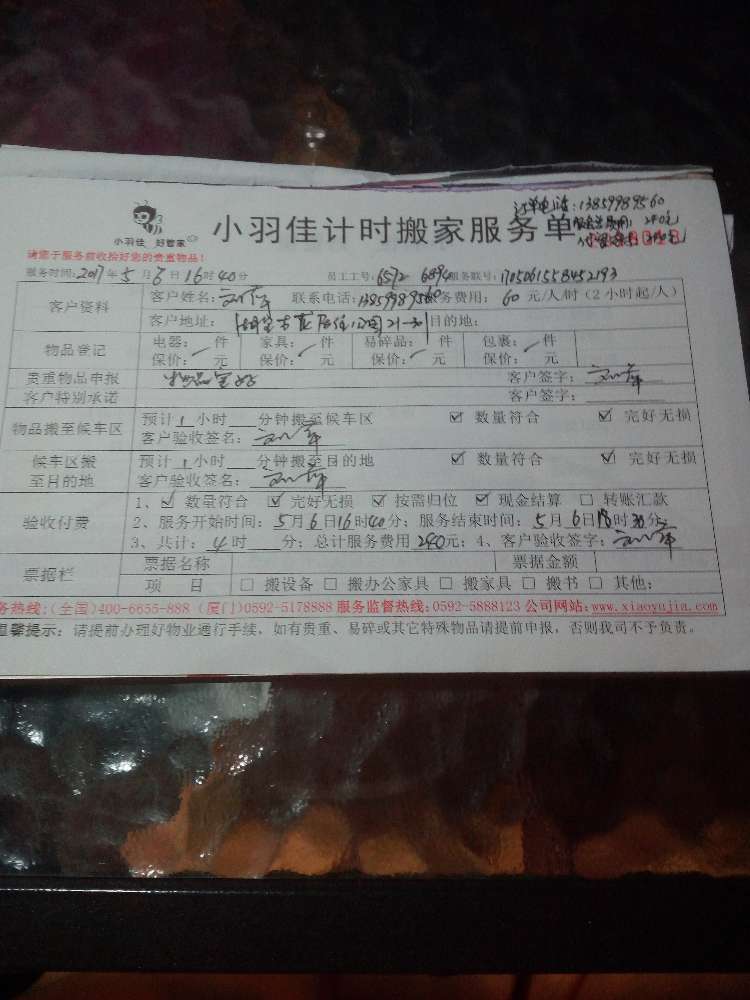 订单电话:13859989560
小羽佳 好管家
小羽佳计时搬家服务单
服务总费用: 240元
请您于服务前收拾好您的贵重物品!
服务时间:2017年5月6日16时40分 员工工号:6572 6894 服务联号:1705061558452193
客户资料
客户姓名: 联系电话:13859989560 服务费用:60元/人/时(2小时起/人)
客户地址: 目的地:
物品登记
电器: 件 家具: 件 易碎品: 件 包裹: 件
保价: 元 保价: 元 保价: 元 保价: 元
贵重物品申报 物品完好 客户签字:
客户特别承诺 客户签字:
物品搬至候车区
预计1小时 分钟搬至候车区 ☑ 数量符合 ☑ 完好无损
客户验收签名:
候车区搬至目的地
预计1小时 分钟搬至目的地 ☑ 数量符合 ☑ 完好无损
客户验收签名:
验收付费
1、☑ 数量符合 ☑ 完好无损 ☑ 按需归位 ☑ 现金结算 □ 转账汇款
2、服务开始时间:5月6日16时40分;服务结束时间:5月6日18时30分
3、共计:4时 分;总计服务费用240元;4、客户验收签字:
票据栏
票据名称 票据金额
项 目 □ 搬设备 □ 搬办公家具 □ 搬家具 □ 搬书 □ 其他:
务热线:(全国)400-6655-888 (厦门)0592-5178888 服务监督热线:0592-5888123 公司网站:www.xiaoyujia.com
温馨提示:请提前办理好物业通行手续,如有贵重、易碎或其它特殊物品请提前申报,否则我司不予负责。